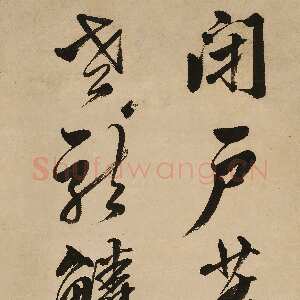 閉戶著
老龍鱗
Shufawang.CN